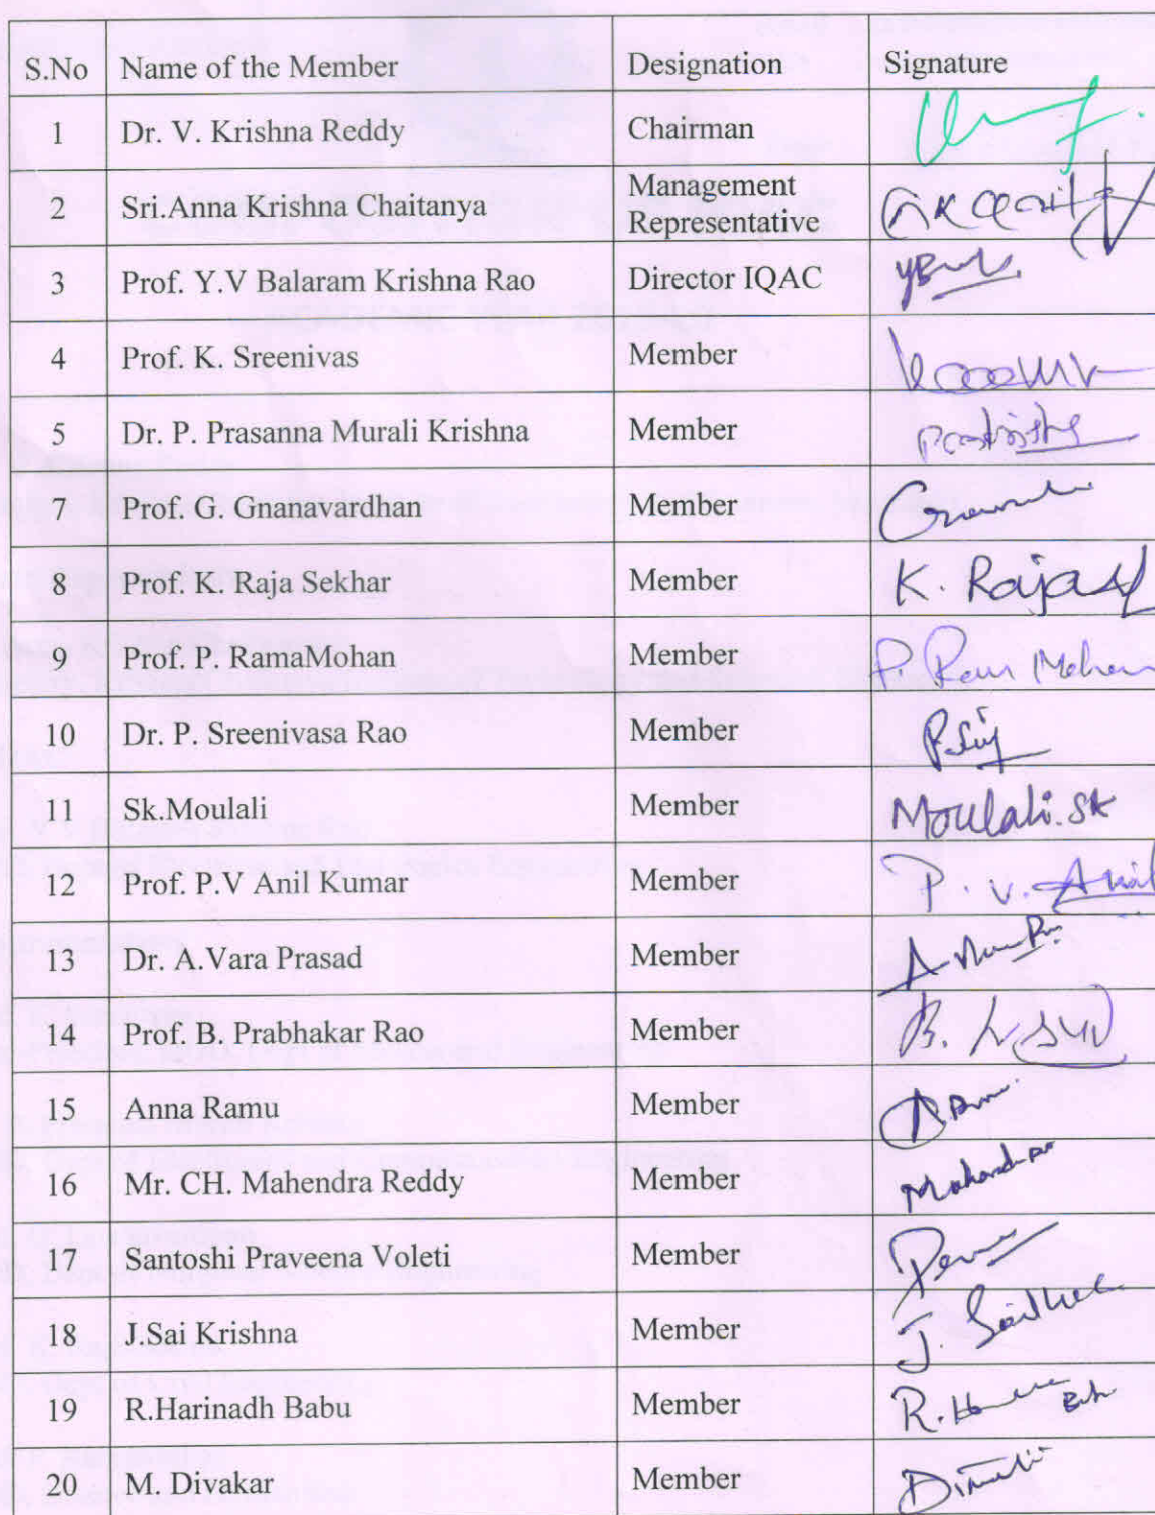 S.No Name of the Member Designation Signature
1 Dr. V. Krishna Reddy Chairman
2 Sri.Anna Krishna Chaitanya Management
Representative
3 Prof. Y.V Balaram Krishna Rao Director IQAC
4 Prof. K. Sreenivas Member
5 Dr. P. Prasanna Murali Krishna Member
7 Prof. G. Gnanavardhan Member
8 Prof. K. Raja Sekhar Member K. Rajas
9 Prof. P. RamaMohan Member P. Ram Mohan
10 Dr. P. Sreenivasa Rao Member
11 Sk.Moulali Member Moulali.Sk
12 Prof. P.V Anil Kumar Member P. V. Anil
13 Dr. A.Vara Prasad Member
14 Prof. B. Prabhakar Rao Member
15 Anna Ramu Member
16 Mr. CH. Mahendra Reddy Member
17 Santoshi Praveena Voleti Member
18 J.Sai Krishna Member
19 R.Harinadh Babu Member
20 M. Divakar Member